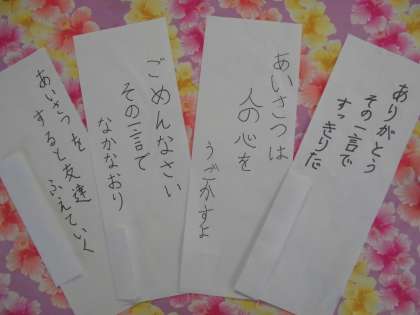 ありがとう
その一言で
すっきりだ
あいさつは
人の心を
うごかすよ
ごめんなさい
その一言で
なかなおり
あいさつを
すると友達
ふえていく